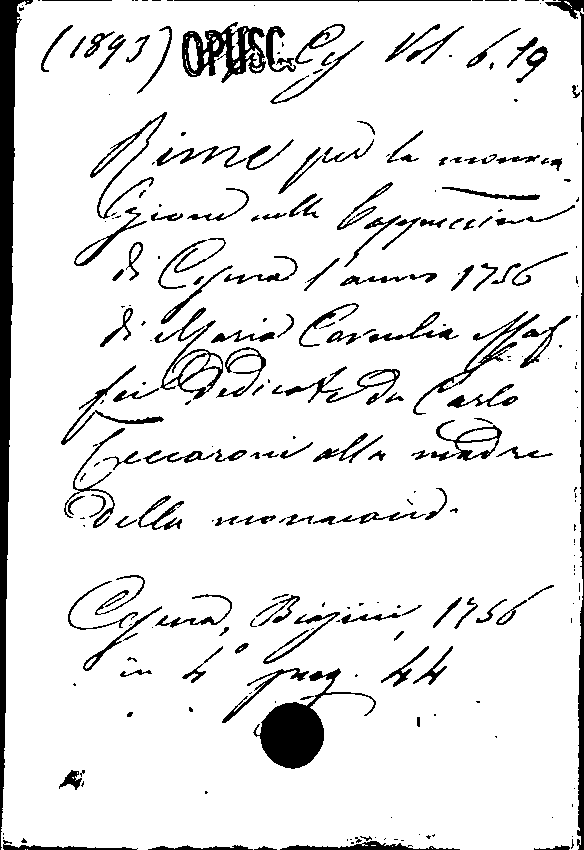 (1893) OPUSC. Cs Vol. 6.19
Rime per la monaca-
zione nelle Cappuccine
di Cesena l'anno 1756
di Maria Cornelia Maf-
fei dedicate da Carlo
Ceccaroni alla madre
della monacand.
Cesena, Biasini, 1756
in 4° pag. 44